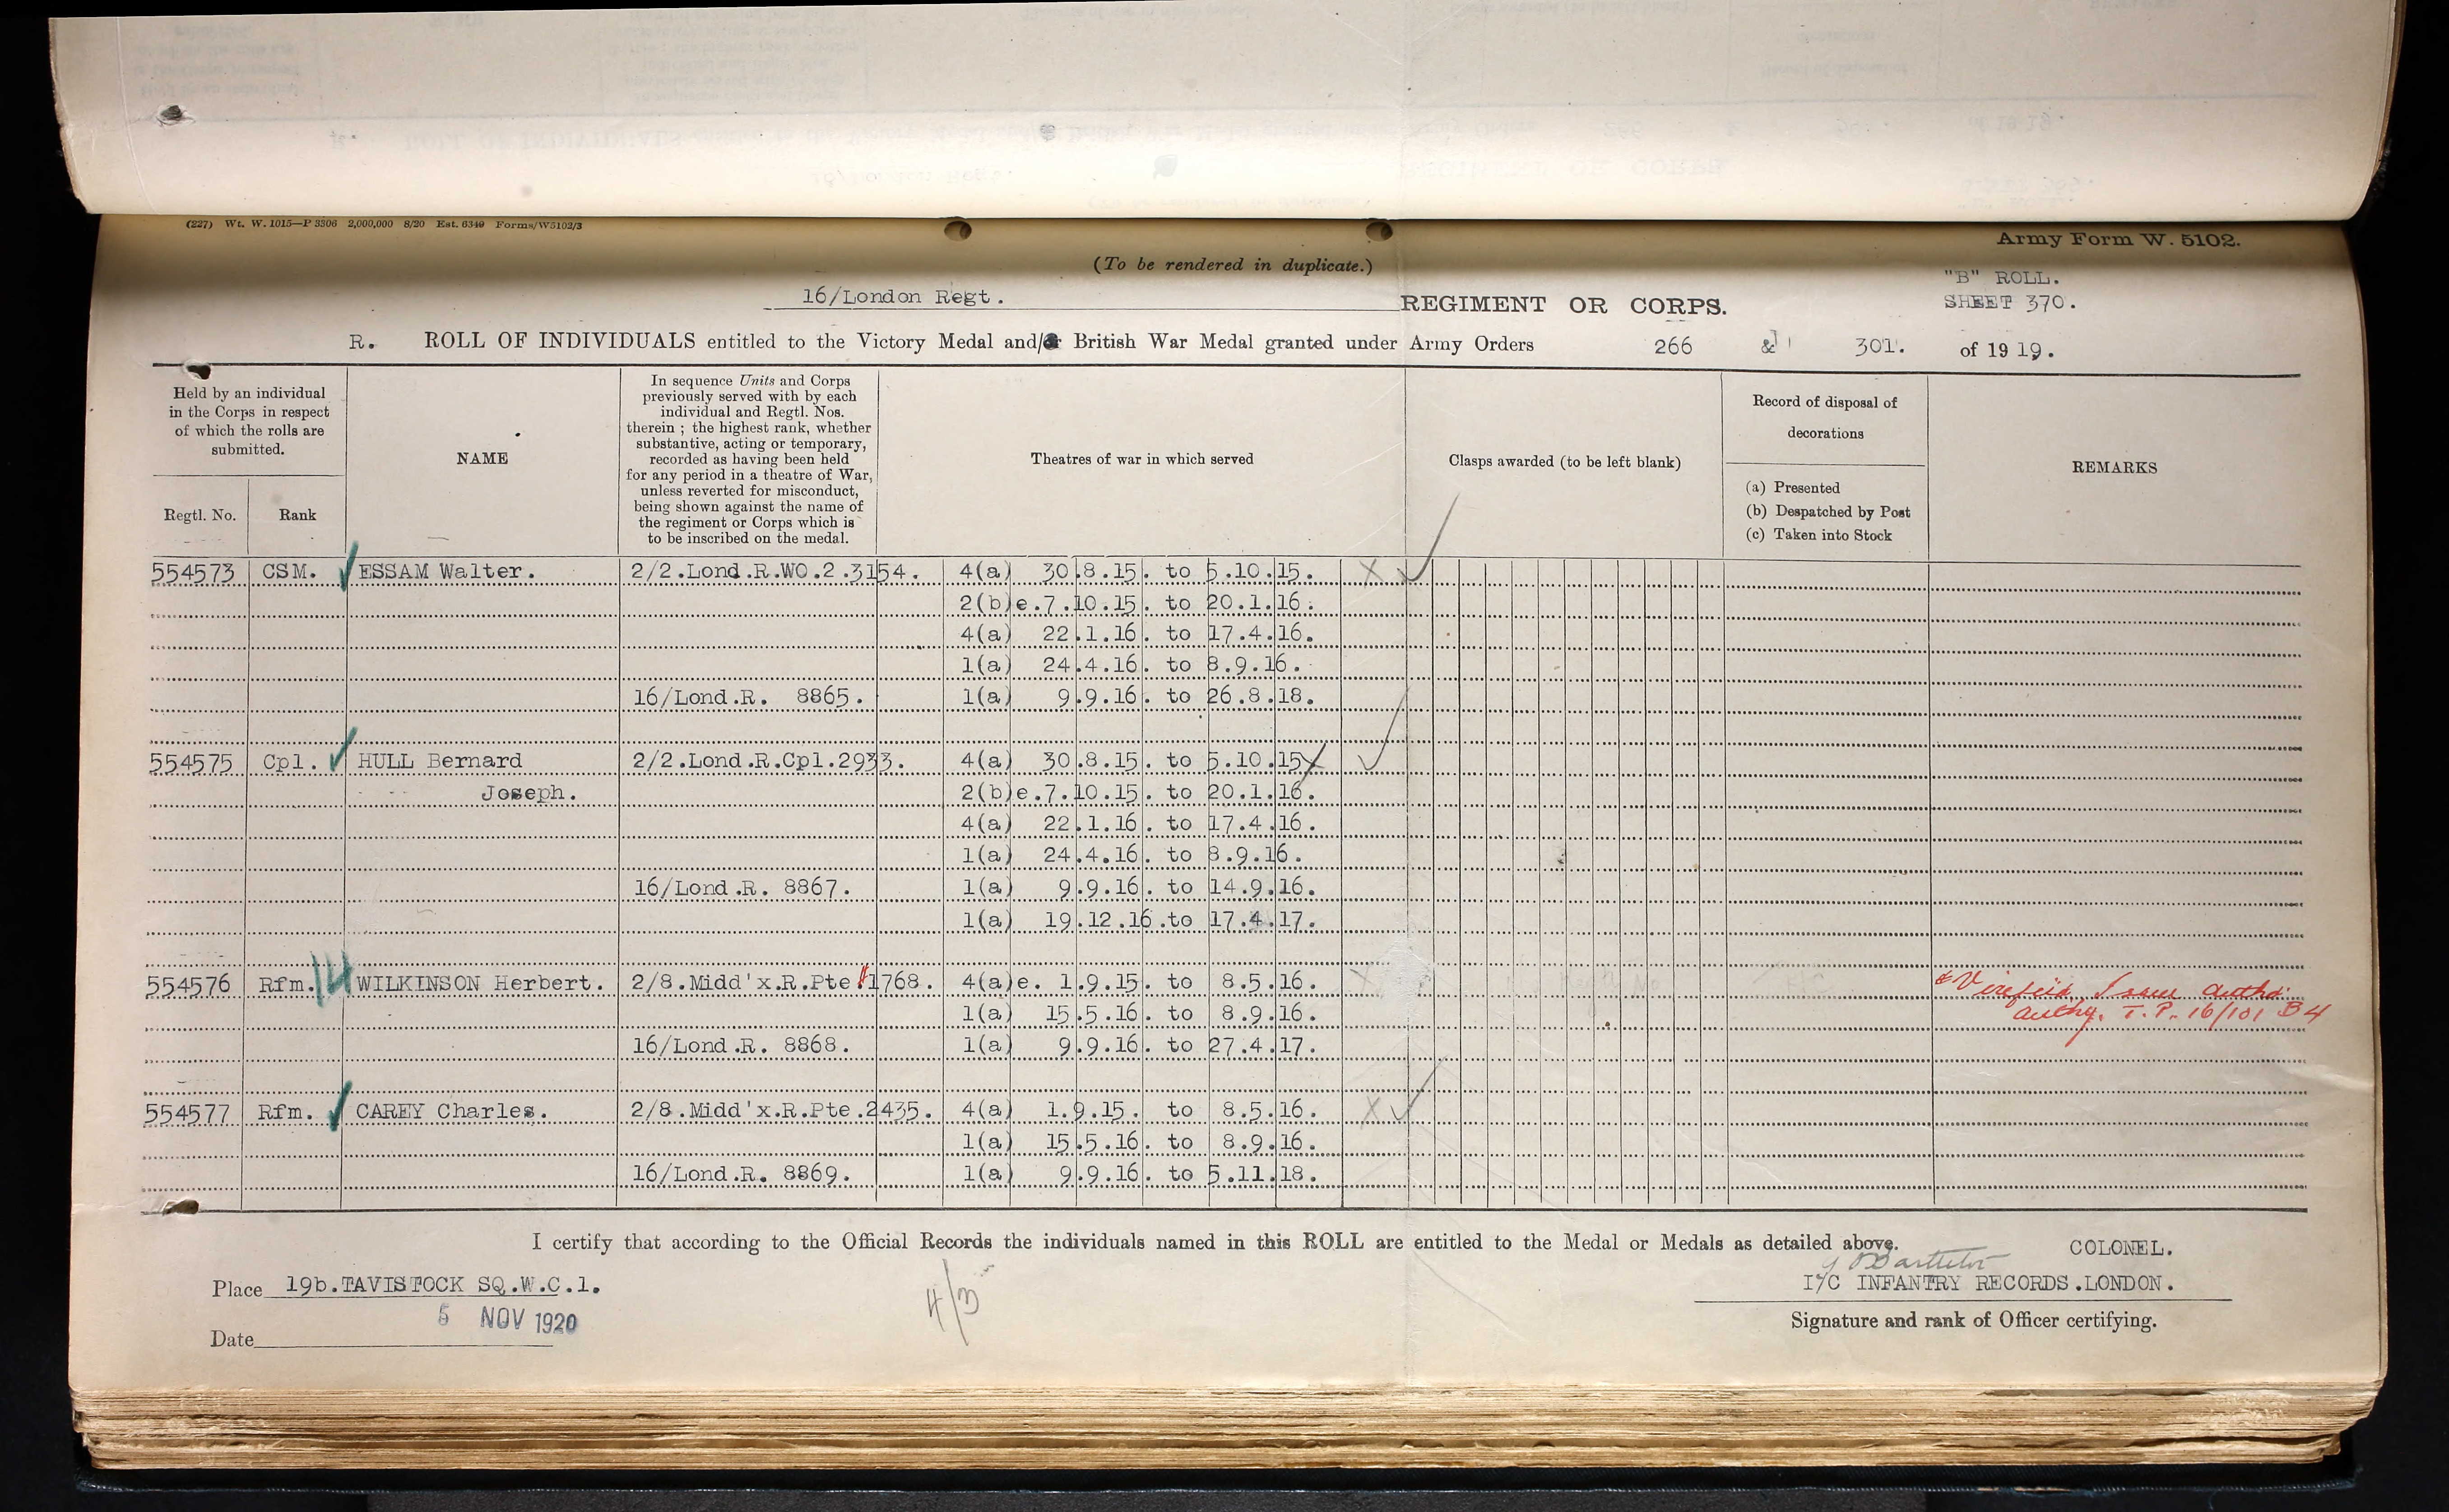 (227) Wt. W. 1015—P 3306 2,000,000 8/20 Est. 6349 Forms/W5102/3
Army Form W. 5102.
(To be rendered in duplicate.)
"B" ROLL.
16/London Regt. REGIMENT OR CORPS. SHEET 370.
R. ROLL OF INDIVIDUALS entitled to the Victory Medal and/ British War Medal granted under Army Orders 266 & 301. of 1919.
Held by an individual in the Corps in respect of which the rolls are submitted.
Regtl. No.
Rank
NAME
In sequence Units and Corps
previously served with by each
individual and Regtl. Nos.
therein ; the highest rank, whether
substantive, acting or temporary,
recorded as having been held
for any period in a theatre of War,
unless reverted for misconduct,
being shown against the name of
the regiment or Corps which is
to be inscribed on the medal.
Theatres of war in which served
Clasps awarded (to be left blank)
Record of disposal of
decorations
(a) Presented
(b) Despatched by Post
(c) Taken into Stock
REMARKS
554573 CSM. ESSAM Walter. 2/2.Lond.R.WO.2.3154. 4(a) 30.8.15. to 5.10.15. X
2(b)e.7.10.15. to 20.1.16.
4(a) 22.1.16. to 17.4.16.
1(a) 24.4.16. to 8.9.16.
16/Lond.R. 8865. 1(a) 9.9.16. to 26.8.18.
554575 Cpl. HULL Bernard 2/2.Lond.R.Cpl.2933. 4(a) 30.8.15. to 5.10.15 X
Joseph. 2(b)e.7.10.15. to 20.1.16.
4(a) 22.1.16. to 17.4.16.
1(a) 24.4.16. to 8.9.16.
16/Lond.R. 8867. 1(a) 9.9.16. to 14.9.16.
1(a) 19.12.16.to 17.4.17.
554576 Rfm. WILKINSON Herbert. 2/8.Midd'x.R.Pte.1768. 4(a)e. 1.9.15. to 8.5.16. X
1(a) 15.5.16. to 8.9.16. authy. T.P. 16/101 B4
16/Lond.R. 8868. 1(a) 9.9.16. to 27.4.17.
554577 Rfm. CAREY Charles. 2/8.Midd'x.R.Pte.2435. 4(a) 1.9.15. to 8.5.16. X
1(a) 15.5.16. to 8.9.16.
16/Lond.R. 8869. 1(a) 9.9.16. to 5.11.18.
I certify that according to the Official Records the individuals named in this ROLL are entitled to the Medal or Medals as detailed above.
COLONEL.
Place 19b.TAVISTOCK SQ.W.C.1. I/C INFANTRY RECORDS.LONDON.
4/3
Date 5 NOV 1920 Signature and rank of Officer certifying.